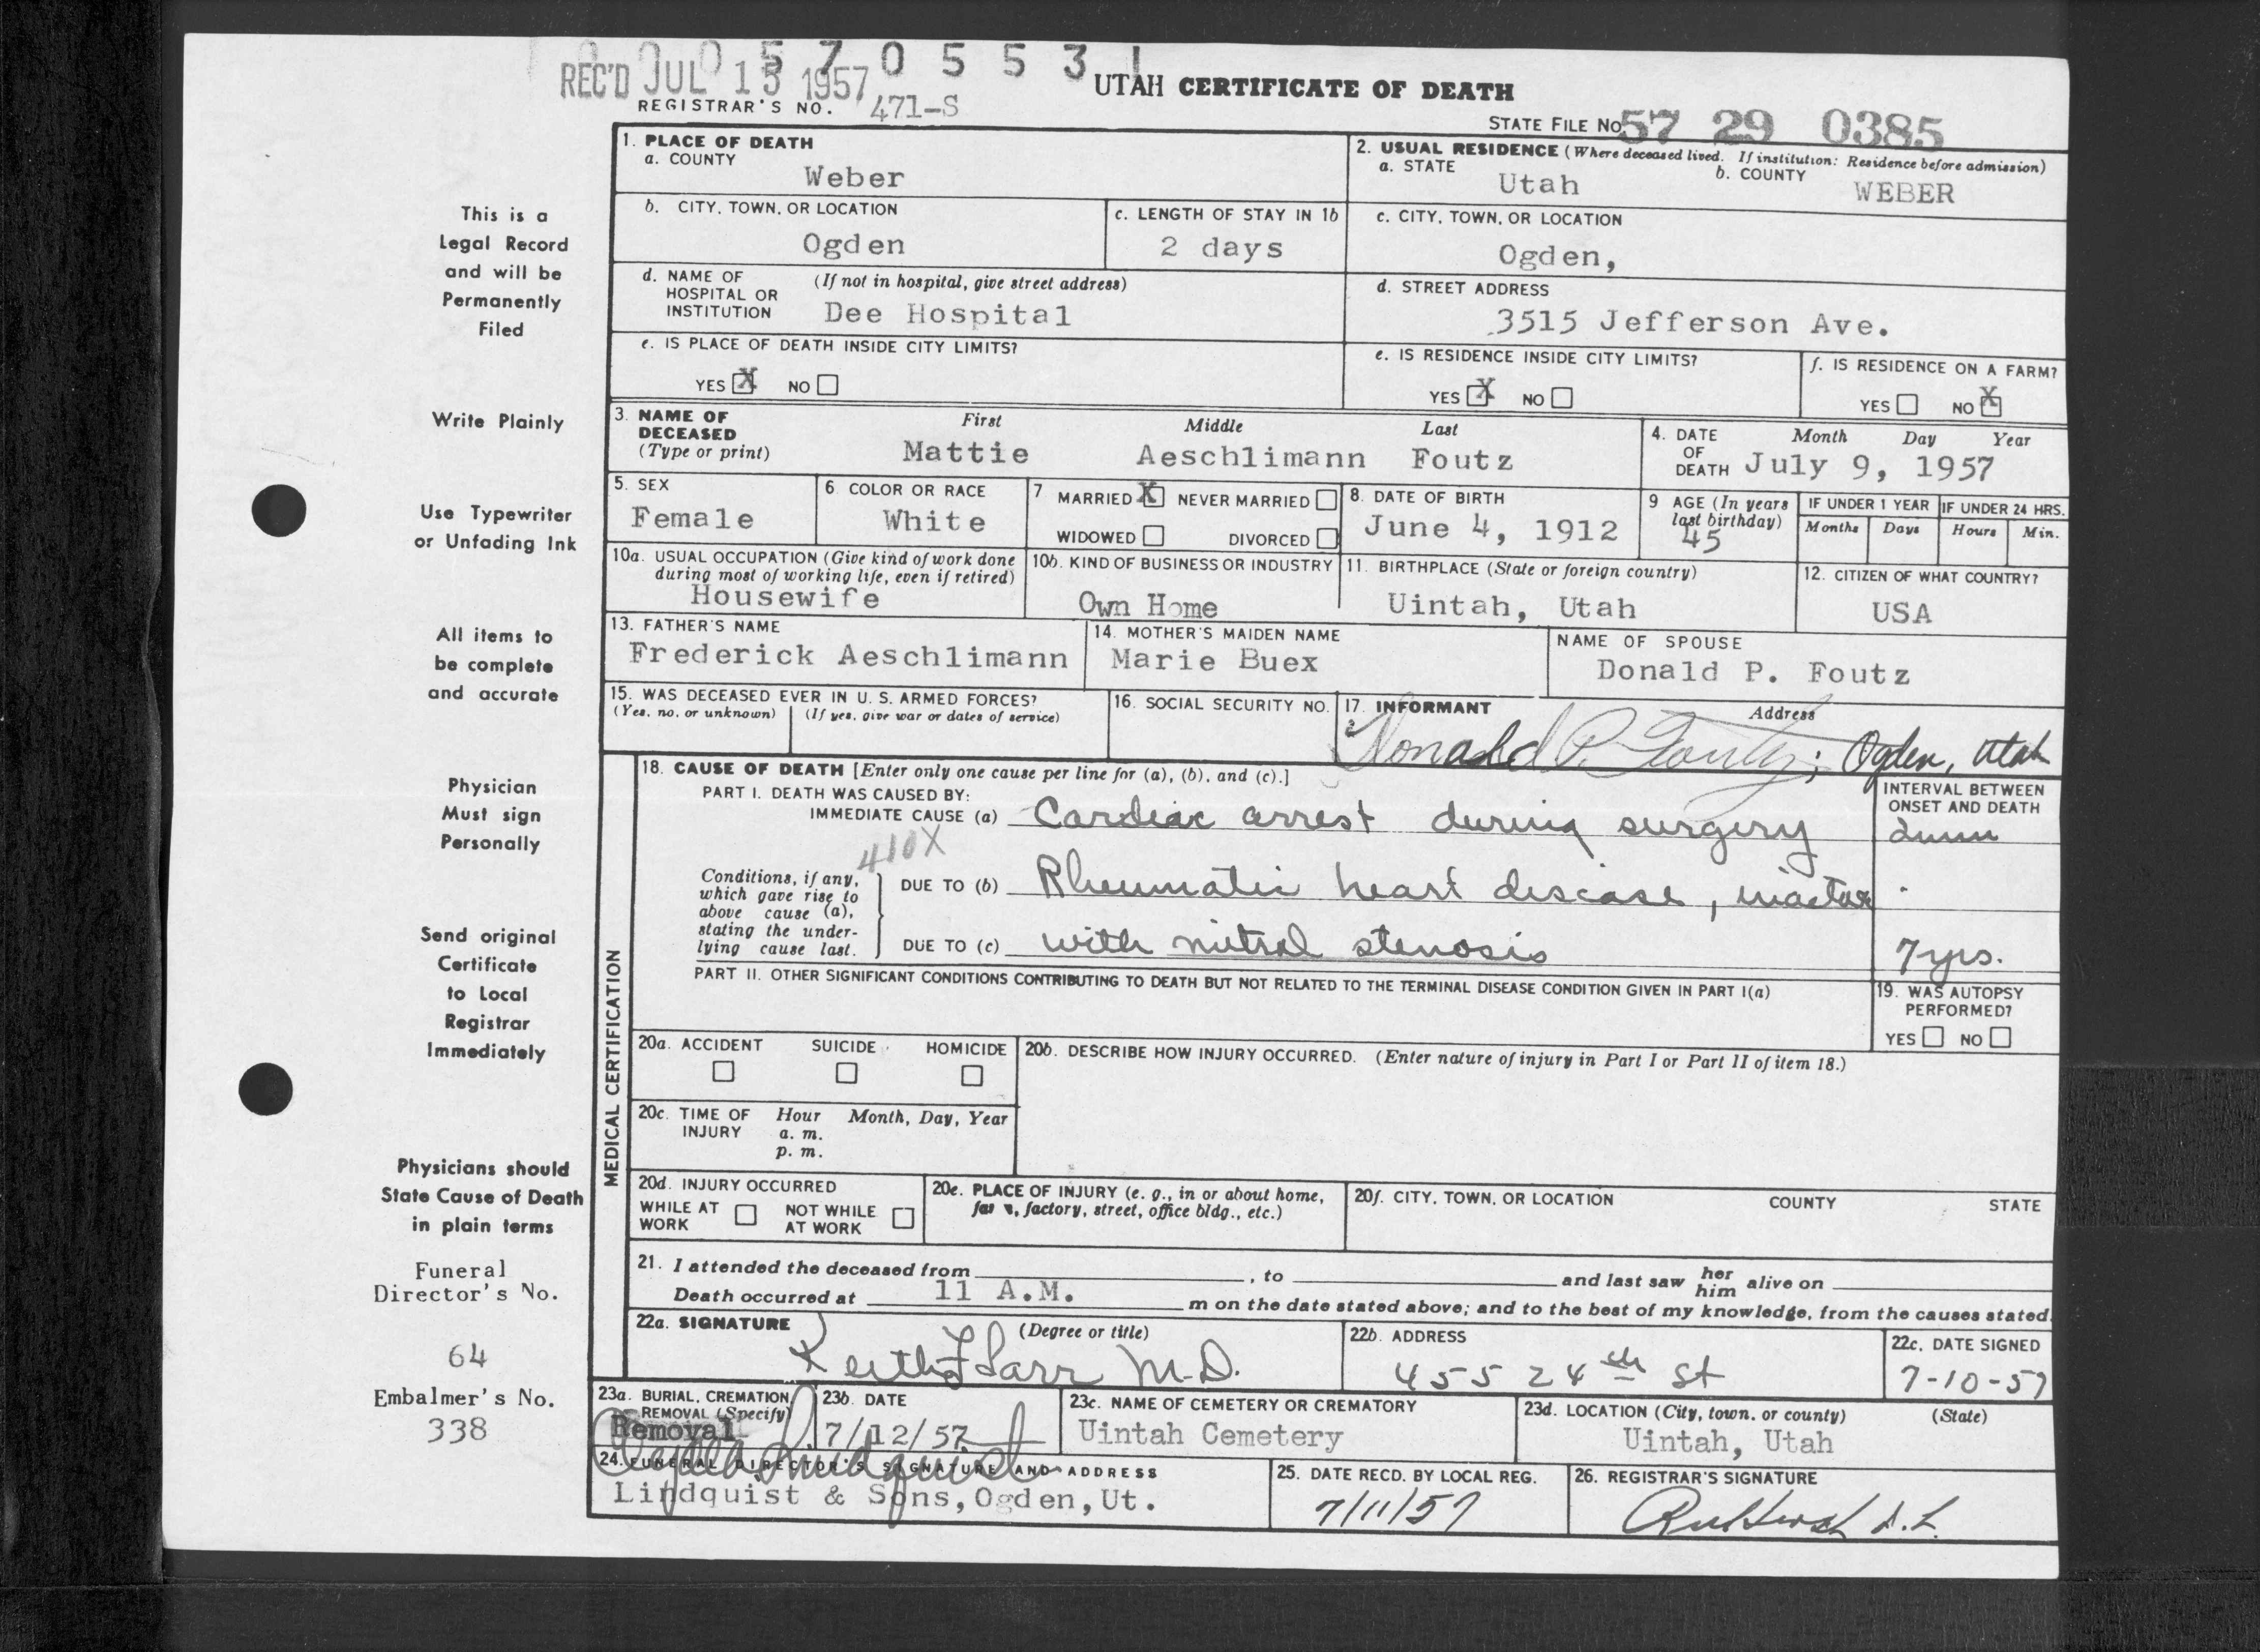 0 0 0 5 7 0 5 5 3 1
REC'D JUL 15 1957
UTAH CERTIFICATE OF DEATH
REGISTRAR'S NO. 471-S
STATE FILE NO. 57 29 0385
1. PLACE OF DEATH
a. COUNTY
Weber
2. USUAL RESIDENCE (Where deceased lived. If institution: Residence before admission)
a. STATE Utah b. COUNTY WEBER
b. CITY, TOWN, OR LOCATION
Ogden
c. LENGTH OF STAY IN 1b
2 days
c. CITY, TOWN, OR LOCATION
Ogden,
d. NAME OF HOSPITAL OR INSTITUTION (If not in hospital, give street address)
Dee Hospital
d. STREET ADDRESS
3515 Jefferson Ave.
e. IS PLACE OF DEATH INSIDE CITY LIMITS?
YES X NO
e. IS RESIDENCE INSIDE CITY LIMITS?
YES X NO
f. IS RESIDENCE ON A FARM?
YES NO X
3. NAME OF DECEASED (Type or print)
First Middle Last
Mattie Aeschlimann Foutz
4. DATE OF DEATH Month Day Year
July 9, 1957
5. SEX
Female
6 COLOR OR RACE
White
7 MARRIED X NEVER MARRIED
WIDOWED DIVORCED
8. DATE OF BIRTH
June 4, 1912
9 AGE (In years last birthday)
45
IF UNDER 1 YEAR
Months Days
IF UNDER 24 HRS.
Hours Min.
10a. USUAL OCCUPATION (Give kind of work done during most of working life, even if retired)
Housewife
10b. KIND OF BUSINESS OR INDUSTRY
Own Home
11. BIRTHPLACE (State or foreign country)
Uintah, Utah
12. CITIZEN OF WHAT COUNTRY?
USA
13. FATHER'S NAME
Frederick Aeschlimann
14. MOTHER'S MAIDEN NAME
Marie Buex
NAME OF SPOUSE
Donald P. Foutz
15. WAS DECEASED EVER IN U. S. ARMED FORCES?
(Yes, no, or unknown) (If yes, give war or dates of service)
16. SOCIAL SECURITY NO.
17. INFORMANT Address
Donald P. Foutz; Ogden, Utah
MEDICAL CERTIFICATION
18. CAUSE OF DEATH [Enter only one cause per line for (a), (b), and (c).]
PART I. DEATH WAS CAUSED BY:
IMMEDIATE CAUSE (a) Cardiac arrest during surgery
INTERVAL BETWEEN ONSET AND DEATH
410X
Conditions, if any, which gave rise to above cause (a), stating the underlying cause last.
DUE TO (b) Rheumatic heart disease, inactive
DUE TO (c) with mitral stenosis
7 yrs.
PART II. OTHER SIGNIFICANT CONDITIONS CONTRIBUTING TO DEATH BUT NOT RELATED TO THE TERMINAL DISEASE CONDITION GIVEN IN PART I(a)
19. WAS AUTOPSY PERFORMED?
YES NO
20a. ACCIDENT SUICIDE HOMICIDE
20b. DESCRIBE HOW INJURY OCCURRED. (Enter nature of injury in Part I or Part II of item 18.)
20c. TIME OF INJURY Hour Month, Day, Year
a. m.
p. m.
20d. INJURY OCCURRED
WHILE AT WORK NOT WHILE AT WORK
20e. PLACE OF INJURY (e. g., in or about home, farm, factory, street, office bldg., etc.)
20f. CITY, TOWN, OR LOCATION COUNTY STATE
21. I attended the deceased from , to and last saw her him alive on
Death occurred at 11 A.M. m on the date stated above; and to the best of my knowledge, from the causes stated.
22a. SIGNATURE (Degree or title)
Keith F Farr M.D.
22b. ADDRESS
455 24th St
22c. DATE SIGNED
7-10-57
23a. BURIAL, CREMATION, REMOVAL (Specify)
Removal
23b. DATE
7/12/57
23c. NAME OF CEMETERY OR CREMATORY
Uintah Cemetery
23d. LOCATION (City, town, or county) (State)
Uintah, Utah
24. FUNERAL DIRECTOR'S SIGNATURE AND ADDRESS
Lindquist & Sons, Ogden, Ut.
25. DATE RECD. BY LOCAL REG.
7/11/57
26. REGISTRAR'S SIGNATURE
This is a
Legal Record
and will be
Permanently
Filed
Write Plainly
Use Typewriter
or Unfading Ink
All items to
be complete
and accurate
Physician
Must sign
Personally
Send original
Certificate
to Local
Registrar
Immediately
Physicians should
State Cause of Death
in plain terms
Funeral
Director's No.
64
Embalmer's No.
338